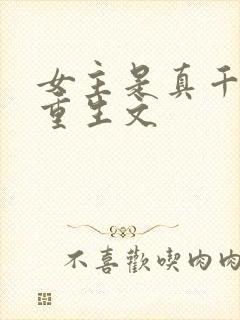 女主是真千
重生文
不喜歡喫肉肉